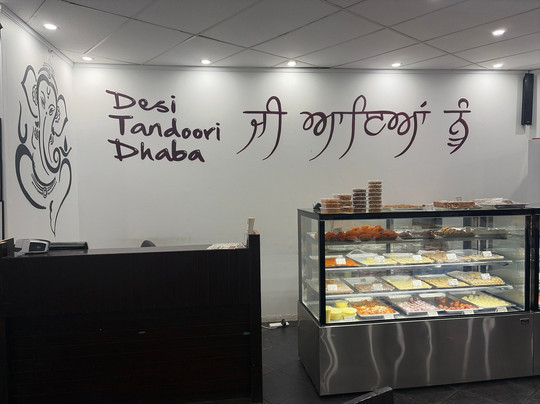 Desi
Tandoori
Dhaba
ਜੀ ਆਇਆਂ ਨੂੰ